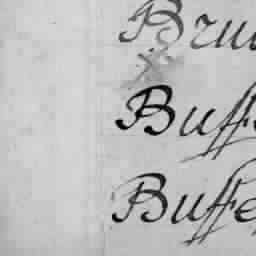 Bru
Buff
Buffe